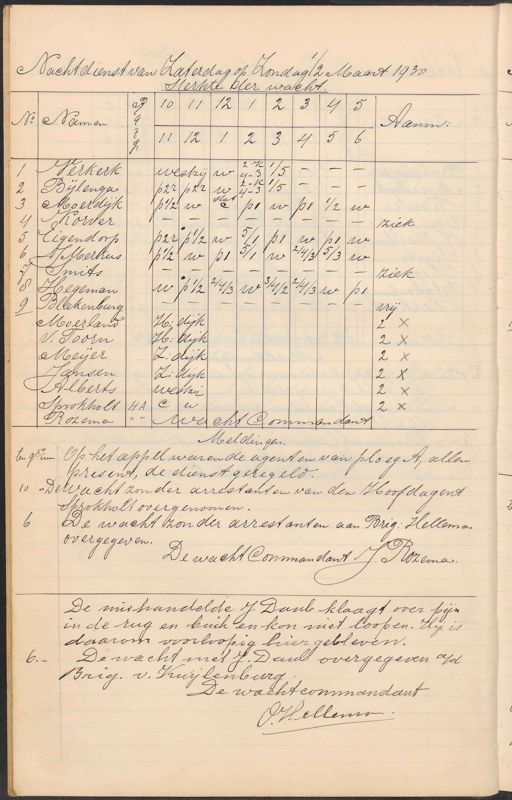 Nachtdienst van Zaterdag op Zondag 1/2 Maart 1930
Sterkte der wacht.
No. Namen Rang 10 11 12 1 2 3 4 5 Aanm:
11 12 1 2 3 4 5 6
1 Verkerk westzij w 2-k 4-3 1/5 – – – –
2 Bijlenga p2r p2r w 2-k 4-3 1/5 – – – –
3 Moerdijk p1/2 w c p1 w p1 1/2 w
4 Korver – – – – – – – – ziek
5 Eigendorp p2r p1/2 w 5/1 p1 w p1 w
6 v/Merkus p1/2 w p1 5/1 w 2/4/3 5/3 w
7 Smits – – – – – – – – ziek
8 Hegeman w p1/2 2/4/3 w 3/4/2 2/4/3 w p1
9 Blekenburg – – – – – – – – vrij
Moerland H: dijk 2 x
v. Toorn H: dijk 2 x
Meijer Z. dijk 2 x
Jansen Z: dijk 2 x
Alberts westzij 2 x
Sprokholt HA C w 2 x
Rozema " " Wacht Commandant
Meldingen
ten 9 3/4 ure Op het appèl waren de agenten van ploeg A, allen
present, de dienst geregeld.
10 " De wacht zonder arrestanten van den Hoofdagent
Sprokholt overgenomen.
6 De wacht zonder arrestanten aan Brig: Hellema
overgegeven.
De wacht Commandant J Rozema.
De mishandelde J Daub klaagt over pijn
in de rug en buik en kon niet loopen. Hij is
daarom voorloopig hier gebleven.
6.- De wacht met J. Daub overgegeven a/d
Brig. v. Kuijlenburg.
De wachtcommandant
O. Hellema.